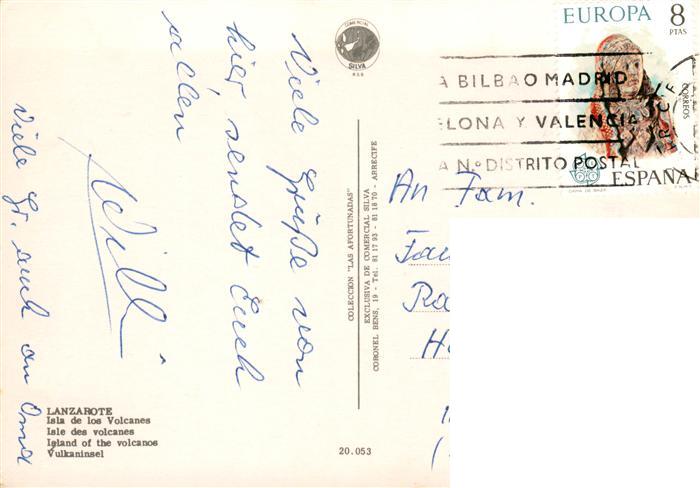 Viele Grüße von
hier, sendet Euch
allen
Willi
Viele Gr. auch an Oma
COMERCIAL
SILVA
EUROPA 8
PTAS
CORREOS
ESPAÑA
DAMA DE BAZA
A BILBAO MADRID
ELONA Y VALENCIA
A N.º DISTRITO POSTAL
An Fam.
COLECCION "LAS AFORTUNADAS"
EXCLUSIVA DE COMERCIAL SILVA
CORONEL BENS, 19 - Tel. 81 17 93 - 81 18 70 - ARRECIFE
LANZAROTE
Isla de los Volcanes
Isle des volcanes
Island of the volcanos
Vulkaninsel
20.053